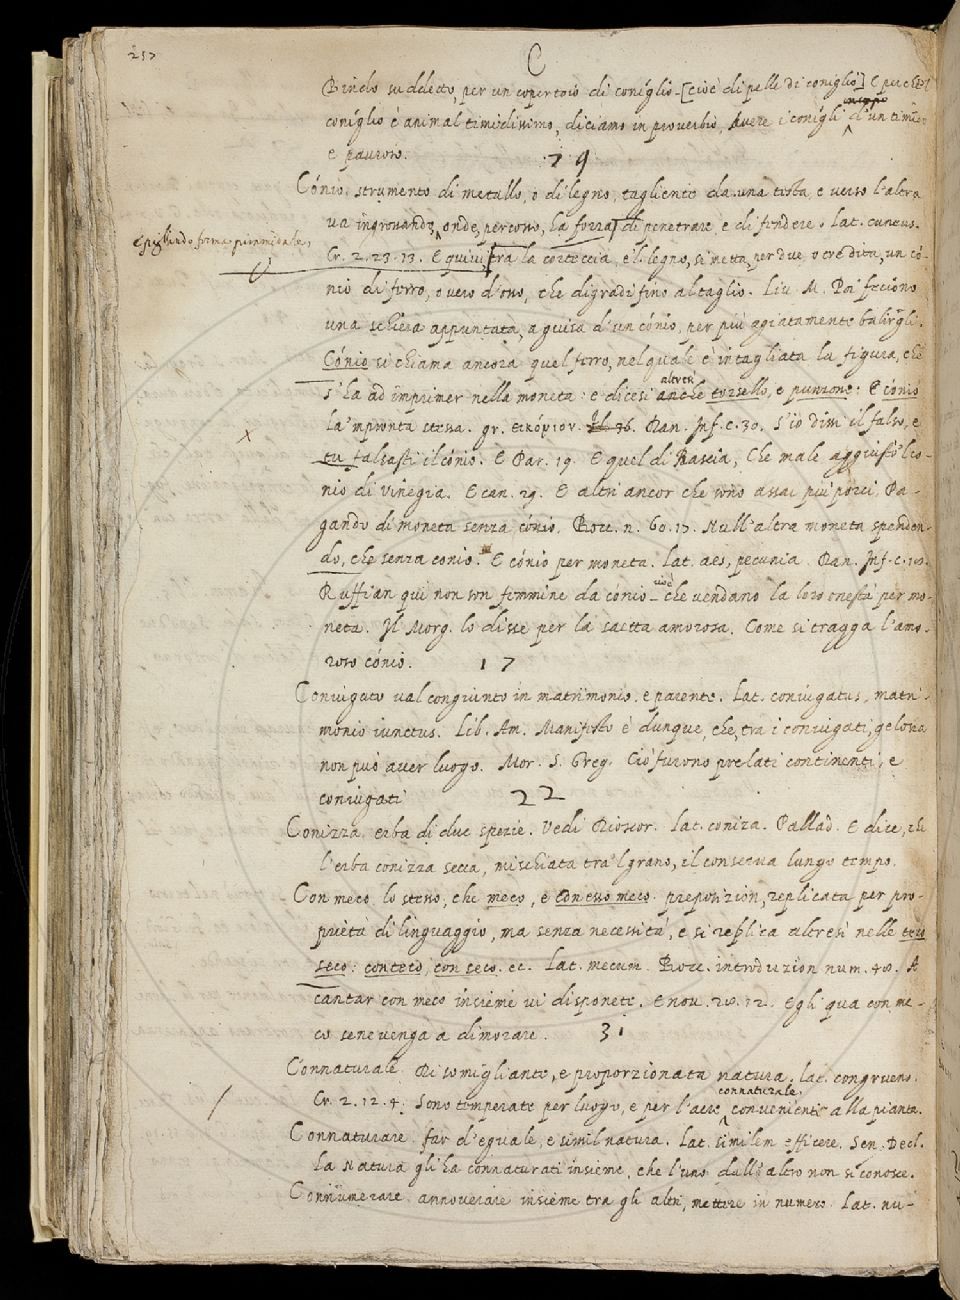 257
C
Bindo suddecto, per un copertoio di coniglio [cioè di pelle di coniglio] E perchè il
coniglio è animal timidissimo, diciamo in proverbio, Avere i conigli in corpo d'un timido
e pauroso. 79
Cónio. strumento di metallo, o di legno, tagliente da una testa, e verso l'altra
va ingrossando, onde, percosso, ha forza di penetrare, e di fendere. Lat. cuneus.
e pigliando forma piramidale,
Cr. 2. 23. 13. E quivi tra la corteccia, e 'l legno, si metta, per due, o tre dita, un có-
nio di ferro, o vero d'osso, che digradi fino al taglio. Liv. M. Poi feciono
una schiera appuntata, a guisa d'un cónio, per più agiatamente
Cónio si chiama ancora quel ferro, nel quale è intagliata la figura, che
s'ha ad imprimer nella moneta: e dicesi anche torsello, e punzone: E cónio
la 'mpronta stessa. gr. Dan. Inf. c. 30. S'io dissi il falso, e
tu falsasti il cónio. E Par. 19. E quel di Rascia, Che male aggiustò 'l co-
nio di Vinegia. E can. 29. E altri ancor che sono assai più porci, Pa-
gando di moneta senza cónio. Bocc. n. 60. 17. Null'altra moneta spenden-
do, che senza conio. E cónio per moneta. Lat. aes, pecunia. Dan. Inf. c. 18.
Ruffian qui non son femmine da cónio cioè che vendano la loro onestà per mo-
neta. Il Morg. lo disse per la saetta amorosa. Come si tragga l'amo-
roso cónio. 17
Coniugato val congiunto in matrimonio. e parente. Lat. coniugatus, matri-
monio iunctus. Lib. Am. Manifesto è dunque, che, tra i coniugati, gelosia
non può aver luogo. Mor. S. Greg. Ciò furono prelati continenti, e
coniugati 22
Conizza, erba di due spezie. Vedi Dioscor. Lat. coniza. Pallad. E dice, che
l'erba conizza secca, mischiata tra 'l grano, il conserva lungo tempo.
Con meco. lo stesso, che meco, e con esso meco. preposizion, replicata per pro-
prietà di linguaggio, ma senza necessità, e si replica altresì nelle teco
seco: conteco, con seco. ec. Lat. mecum. Bocc. introduzion num. 48. A
cantar con meco insieme vi disponete. E nov. 28. 12. Egli qua con me-
co sene venga a dimorare. 31
Connaturale. Di somigliante, e proporzionata natura. lat. congruens.
Cr. 2. 12. 4. Sono temperate per luogo, e per l'aere connaturale, conveniente alla pianta.
Connaturare. far d'eguale, e simil natura. Lat. similem efficere. Sen. Decl.
La Natura gli ha connaturati insieme, che l'uno dall'altro non si conosce.
Connumerare. annoverare insieme tra gli altri, mettere in numero. Lat. nu-